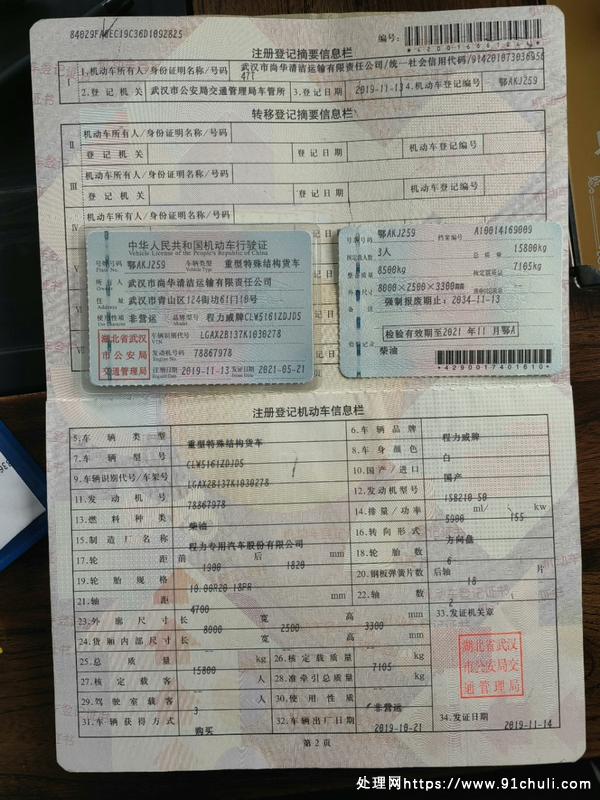 84029FA8EC19C36D1092825
注册登记摘要信息栏
编号:
I 1.机动车所有人/身份证明名称/号码 武汉市尚华清洁运输有限责任公司/统一社会信用代码/
2.登记机关 武汉市公安局交通管理局车管所 3.登记日期 2019-11-13 4.机动车登记编号 鄂AKJ259
转移登记摘要信息栏
II 机动车所有人/身份证明名称/号码
登记机关 登记日期 机动车登记编号
III 机动车所有人/身份证明名称/号码
登记机关 登记日期 机动车登记编号
机动车所有人/身份证明名称/号码
中华人民共和国机动车行驶证
Vehicle License of the People's Republic of China
号牌号码 鄂AKJ259 车辆类型 重型特殊结构货车
Plate No. Vehicle Type
所有人 武汉市尚华清洁运输有限责任公司
Owner
住址 武汉市青山区124街坊61门18号
Address
使用性质 非营运 品牌型号 程力威牌CLW5161ZDJD5
Use Character Model
湖北省武汉市公安局交通管理局
车辆识别代号 LGAX2B137K1030278
VIN
发动机号码 78867978
Engine No.
注册日期 2019-11-13 发证日期 2021-05-21
Register Date Issue Date
号牌号码 鄂AKJ259 档案编号 A10014169009
核定载人数 3人 总质量 15800kg
整备质量 8500kg 核定载质量 7105kg
外廓尺寸 8000×2500×3300mm
强制报废期止:2034-11-13
检验有效期至2021年11月鄂A
检验记录
柴油
*4290017401610*
注册登记机动车信息栏
5.车辆类型 重型特殊结构货车 6.车辆品牌 程力威牌
7.车辆型号 CLW5161ZDJD5 8.车身颜色 白
9.车辆识别代号/车架号 LGAX2B137K1030278 10.国产/进口 国产
11.发动机号 78867978 12.发动机型号 158210-50
13.燃料种类 柴油 14.排量/功率 5900 ml/ 155 kw
15.制造厂名称 程力专用汽车股份有限公司 16.转向形式 方向盘
17.轮距 前 1900 后 1820 mm 18.轮胎数 6
19.轮胎规格 10.00R20 18PR 20.钢板弹簧片数 后轴 10 片
21.轴距 4700 mm 22.轴数 2
23.外廓尺寸 长 8000 宽 2500 高 3300 mm 33.发证机关章
24.货厢内部尺寸 长 宽 高 mm
25.总质量 15800 kg 26.核定载质量 7105 kg
27.核定载客 人 28.准牵引总质量 kg
29.驾驶室载客 3 人 30.使用性质 非营运
31.车辆获得方式 购买 32.车辆出厂日期 2019-10-21 34.发证日期 2019-11-14
湖北省武汉市公安局交通管理局
第2页
处理网https://www.91chuli.com/